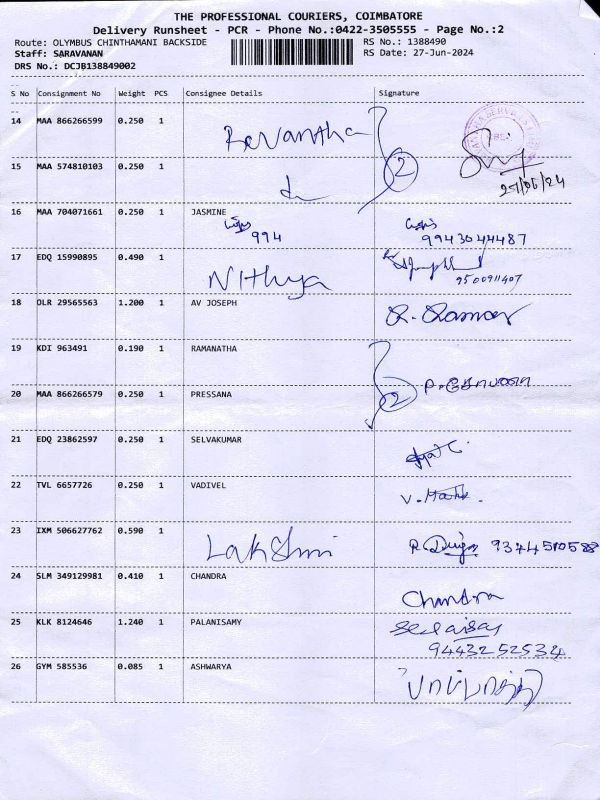 THE PROFESSIONAL COURIERS, COIMBATORE
Delivery Runsheet - PCR - Phone No.:0422-3505555 - Page No.:2
Route: OLYMBUS CHINTHAMANI BACKSIDE RS No.: 1388490
Staff: SARAVANAN RS Date: 27-Jun-2024
DRS No.: DCJB138849002
S No Consignment No Weight PCS Consignee Details Signature
14 MAA 866266599 0.250 1 Revantha
2
15 MAA 574810103 0.250 1
27/06/24
16 MAA 704071661 0.250 1 JASMINE
994 9943044487
17 EDQ 15990895 0.490 1 Nithya
9500911407
18 OLR 29565563 1.200 1 AV JOSEPH
19 KDI 963491 0.190 1 RAMANATHA
2
20 MAA 866266579 0.250 1 PRESSANA
21 EDQ 23862597 0.250 1 SELVAKUMAR
22 TVL 6657726 0.250 1 VADIVEL
23 IXM 506627762 0.590 1 Lakshmi
24 SLM 349129981 0.410 1 CHANDRA Chandra
25 KLK 8124646 1.240 1 PALANISAMY
9443252534
26 GYM 585536 0.085 1 ASHWARYA